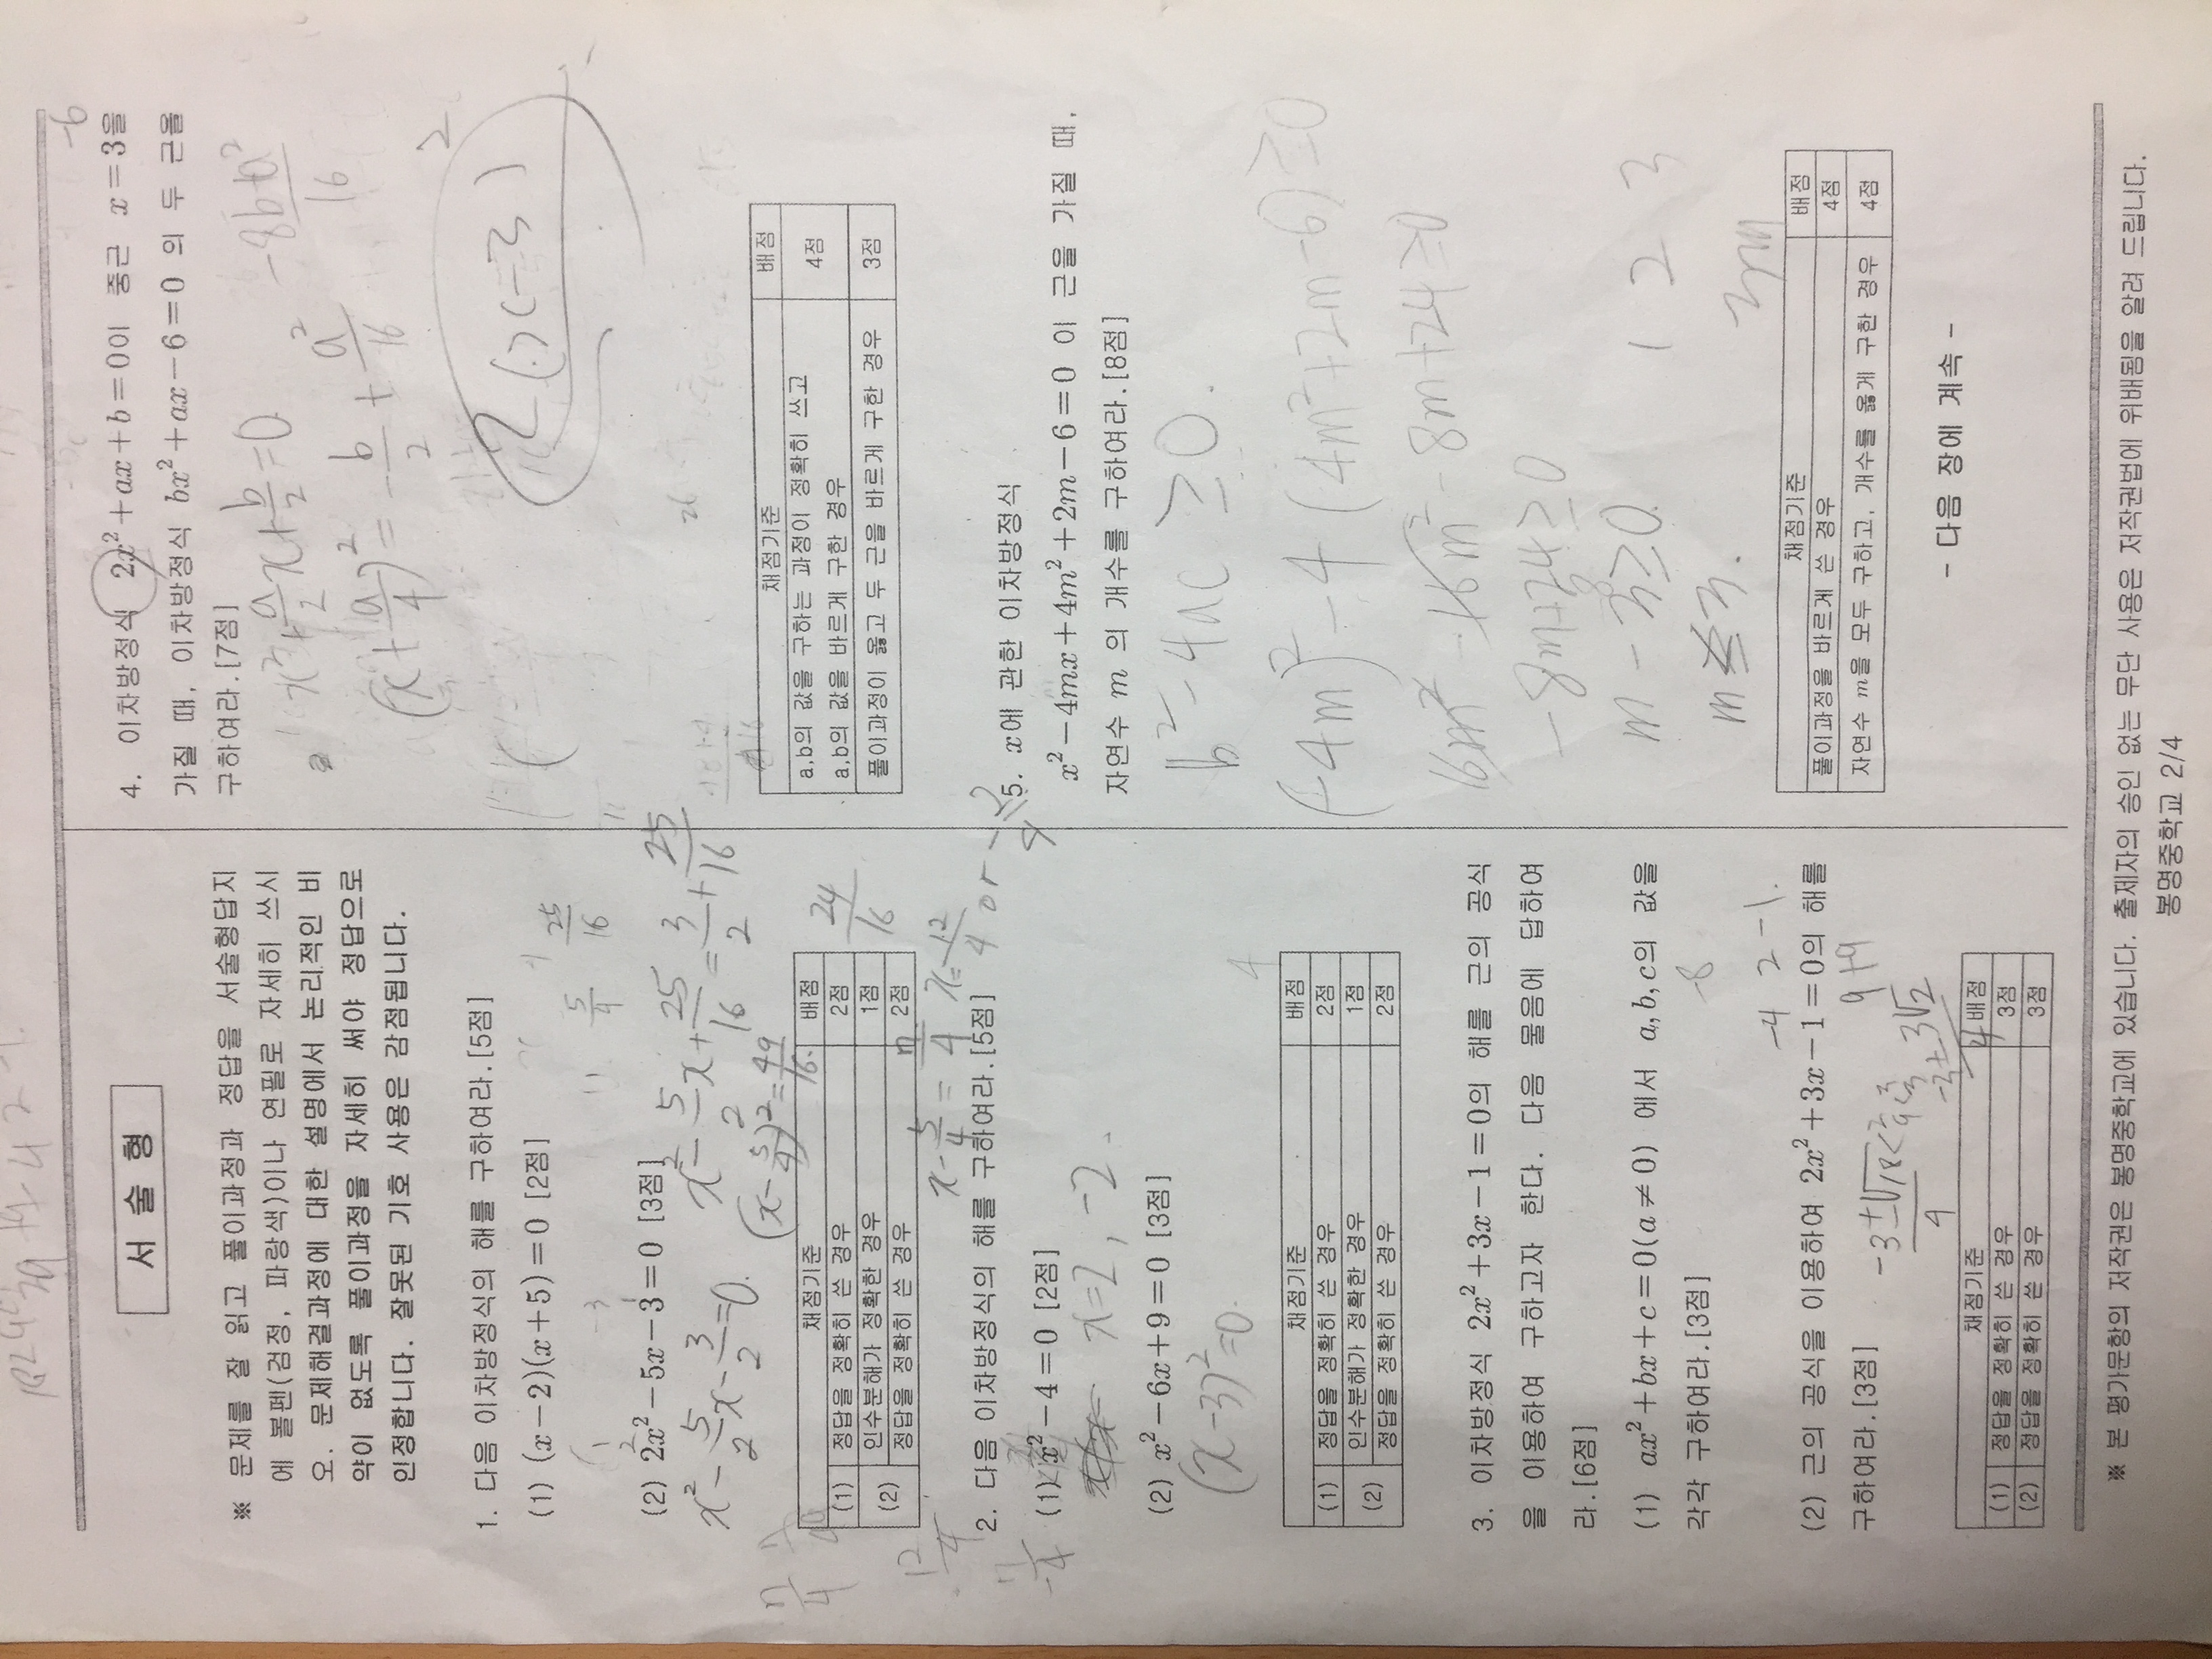 서 술 형
※ 문제를 잘 읽고 풀이과정과 정답을 서술형답지
에 볼펜(검정, 파랑색)이나 연필로 자세히 쓰시
오. 문제해결과정에 대한 설명에서 논리적인 비
약이 없도록 풀이과정을 자세히 써야 정답으로
인정합니다. 잘못된 기호 사용은 감점됩니다.
1. 다음 이차방정식의 해를 구하여라.[5점]
(1) (x-2)(x+5)=0 [2점]
(2) 2x²-5x-3=0 [3점]
x²-5/2x-3/2=0.
x²-5/2x+25/16=3/2+25/16
(x-5/4)²=49/16.
24/16
채점기준 배점
(1) 정답을 정확히 쓴 경우 2점
(2) 인수분해가 정확한 경우 1점
정답을 정확히 쓴 경우 2점
x-5/4=7/4
x=12/4 or
2. 다음 이차방정식의 해를 구하여라.[5점]
(1) x²-4=0 [2점]
x=2, -2.
(2) x²-6x+9=0 [3점]
(x-3)²=0.
채점기준 배점
(1) 정답을 정확히 쓴 경우 2점
(2) 인수분해가 정확한 경우 1점
정답을 정확히 쓴 경우 2점
3. 이차방정식 2x²+3x-1=0의 해를 근의 공식
을 이용하여 구하고자 한다. 다음 물음에 답하여
라.[6점]
(1) ax²+bx+c=0(a≠0) 에서 a,b,c의 값을
각각 구하여라.[3점]
-8
-4 2 -1.
(2) 근의 공식을 이용하여 2x²+3x-1=0의 해를
구하여라.[3점]
9+9
-3±3√2/4
채점기준 배점
(1) 정답을 정확히 쓴 경우 3점
(2) 정답을 정확히 쓴 경우 3점
4. 이차방정식 2x²+ax+b=0이 중근 x=3을
가질 때, 이차방정식 bx²+ax-6=0 의 두 근을
구하여라.[7점]
x²+a/2x+b/2=0
-8b+a²/16
(x+a/4)²=-b/2+a²/16
2(x-3)²
채점기준 배점
a,b의 값을 구하는 과정이 정확히 쓰고
a,b의 값을 바르게 구한 경우 4점
풀이과정이 옳고 두 근을 바르게 구한 경우 3점
5. x에 관한 이차방정식
x²-4mx+4m²+2m-6=0 이 근을 가질 때,
자연수 m 의 개수를 구하여라.[8점]
b²-4ac≥0.
(-4m)²-4(4m²+2m-6)≥0
16m²-16m²-8m+24≥0
-8m+24≥0
m-3≥0.
m≤3.
1 2 3
채점기준 배점
풀이과정을 바르게 쓴 경우 4점
자연수 m을 모두 구하고, 개수를 옳게 구한 경우 4점
- 다음 장에 계속 -
※ 본 평가문항의 저작권은 봉명중학교에 있습니다. 출제자의 승인 없는 무단 사용은 저작권법에 위배됨을 알려 드립니다.
봉명중학교 2/4